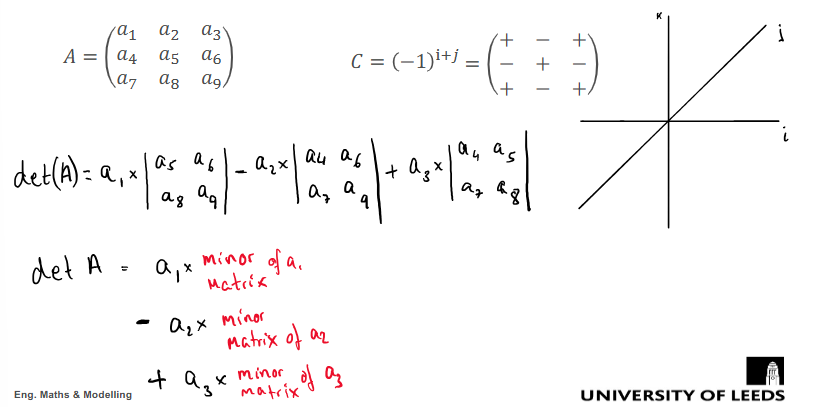 A = ( a₁ a₂ a₃
a₄ a₅ a₆
a₇ a₈ a₉ )
C = (−1)ⁱ⁺ʲ = ( + − +
− + −
+ − + )
K
j
i
det(A) = a₁ × | a₅ a₆ | − a₂ × | a₄ a₆ | + a₃ × | a₄ a₅ |
| a₈ a₉ | | a₇ a₉ | | a₇ a₈ |
det A = a₁ × minor of a₁
matrix
− a₂ × minor
matrix of a₂
+ a₃ × minor of a₃
matrix
Eng. Maths & Modelling
UNIVERSITY OF LEEDS